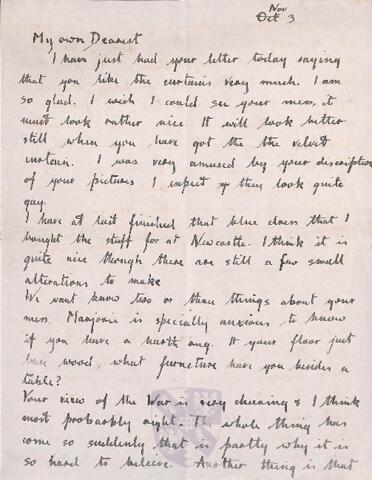 Nov
Oct 3
My own Dearest
I have just had your letter today saying
that you like the curtains very much. I am
so glad. I wish I could see your mess, it
must look rather nice. It will look better
still when you have got the the velvet
curtain. I was very amused by your discription
of your pictures I expect they look quite
gay
I have at last finished that blue dress that I
bought the stuff for at Newcastle. I think it is
quite nice though there are still a few small
alterations to make
We want know two or three things about your
mess. Marjorie is specially anxious to know
if you have a hearth rug. Is your floor just
bare wood, what furniture have you besides a
table?
Your view of the War is very cheering & I think
most probably right. The whole thing has
come so suddenly that is partly why it is
so hard to believe. Another thing is that